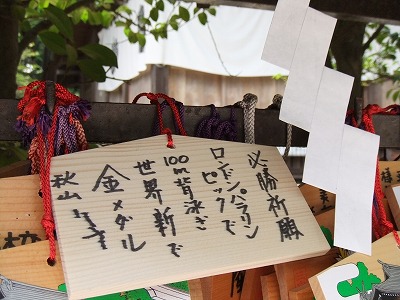 必勝祈願
ロンドンパラリン
ピックで
100m背泳ぎ
世界新で
金メダル
秋山